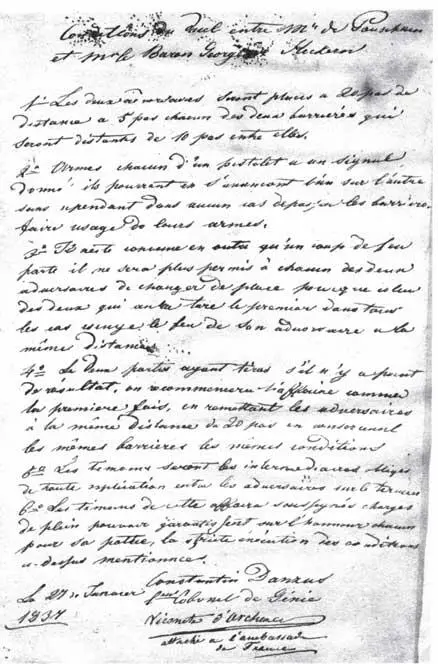 Conditions du duel entre Mr de Pouschkin
et Mr le Baron Georges Heckeren
1o Les deux adversaires seront placés a 20 pas de
distance a 5 pas chacun des deux barrières qui
seront distantes de 10 pas entre elles.
2o Armés chacun d'un pistolet a un signal
donné ils pourront en s'avançant l'un sur l'autre
sans cependant dans aucun cas dépasser les barrières
faire usage de leurs armes.
3o Il reste convenu en outre qu'un coup de feu
parti il ne sera plus permis à chacun des deux
adversaires de changer de place pour que celui
des deux qui aura tiré le premier dans tous
les cas essuye le feu de son adversaire a la
même distance
4o Les deux parties ayant tiré s'il n'y a point
de résultat, on recommencera l'affaire comme
la première fois, en remettant les adversaires
à la même distance de 20 pas en conservant
les mêmes barrières les mêmes conditions
5o Les témoins seront les intermédiaires obligés
de toute explication entre les adversaires sur le terrain
6o Les témoins de cette affaire soussignés chargés
de plein pouvoir garantissent sur l'honneur chacun
pour sa partie, la stricte exécution des conditions
ci-dessus mentionnées.
Constantin Danzas
Le 27 Janvier
Lieut Colonel de Génie
1837
Vicomte d'Archiac
attaché a l'ambassade
de France